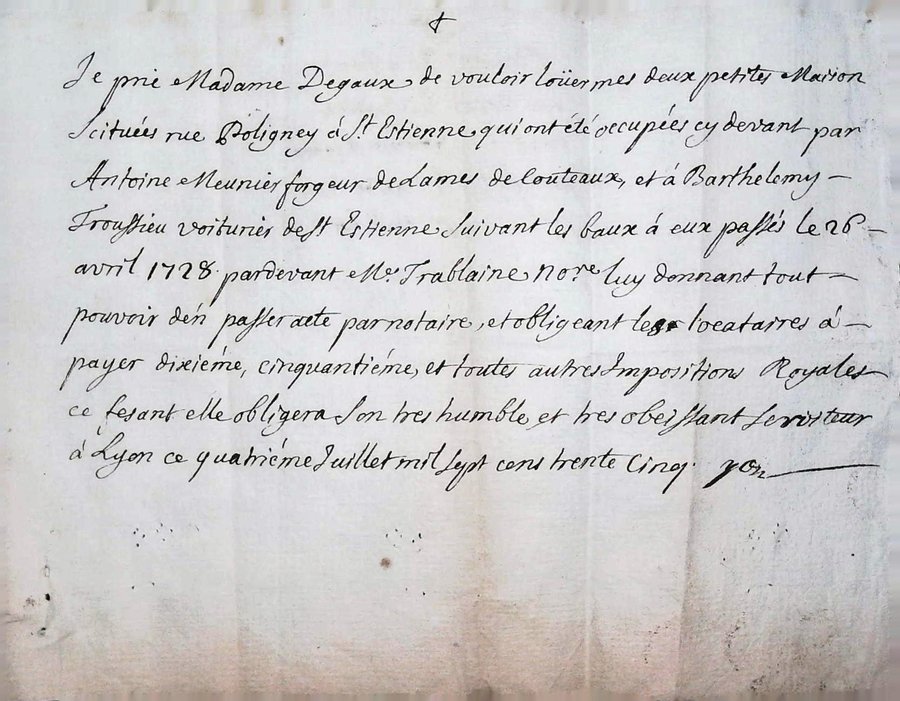 Je prie Madame Degaux de vouloir loüer mes deux petites Maison
Scituées rue Poligney à St. Estienne qui ont été occupées cy devant par
Antoine Meunier forgeur de Lames de Couteaux, et à Barthelemy –
Troussieu voiturier de St Estienne Suivant les baux á eux passés le 26 –
avril 1728 pardevant Me. Trablaine nore luy donnant tout –
pouvoir dén passer acte par notaire, et obligeant les locataires á –
payer dixiéme, cinquantiéme, et toutes autres Impositions Royales
ce fesant elle obligera Son tres humble, et tres obeissant Serviteur
á Lyon ce quatriéme Juillet mil Sept cens trente Cinq. yon